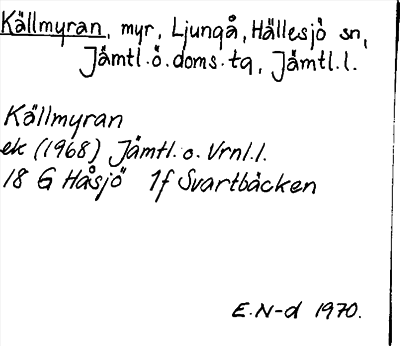 Källmyran, myr, Ljungå, Hällesjö sn,
Jämtl.ö.doms.tg, Jämtl.l.
Källmyran
ek (1968) Jämtl. o. Vrnl.l.
18 G Håsjö 1f Svartbäcken
E.N-d 1970.